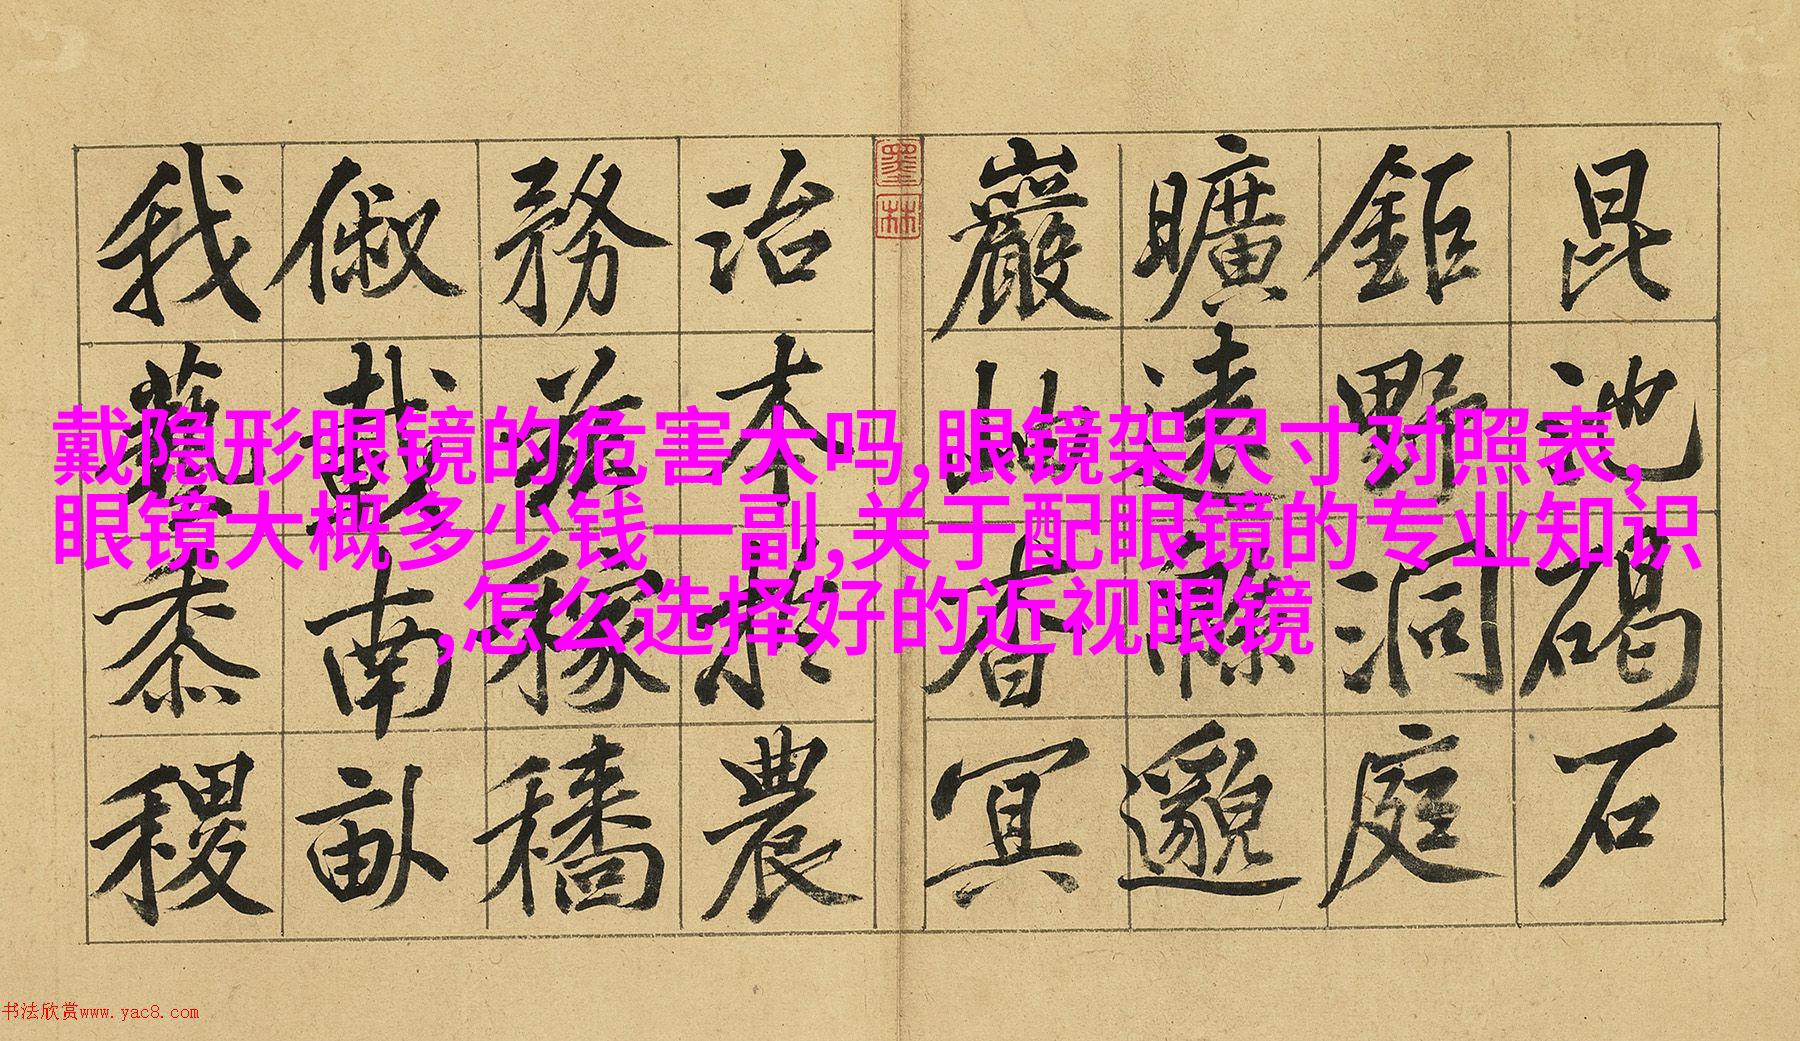 昆池碣石
鉅野洞庭
曠遠緜邈
巖岫杳冥
墨林
治本於農
務茲稼穡
俶載南畝
我藝黍稷
戴隐形眼镜的危害大吗,眼镜架尺寸对照表,
眼镜大概多少钱一副,关于配眼镜的专业知识
,怎么选择好的近视眼镜
书法欣赏www.yac8.com